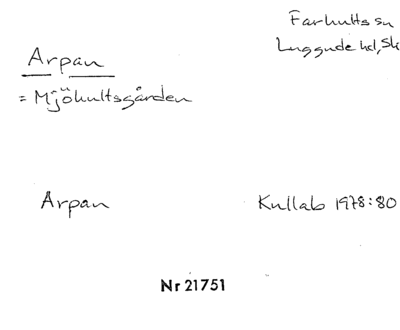 Farhults sn
Luggude hd, Sk
Arpan
= Mjöhultsgården
Arpan Kullab 1978:80
Nr 21751